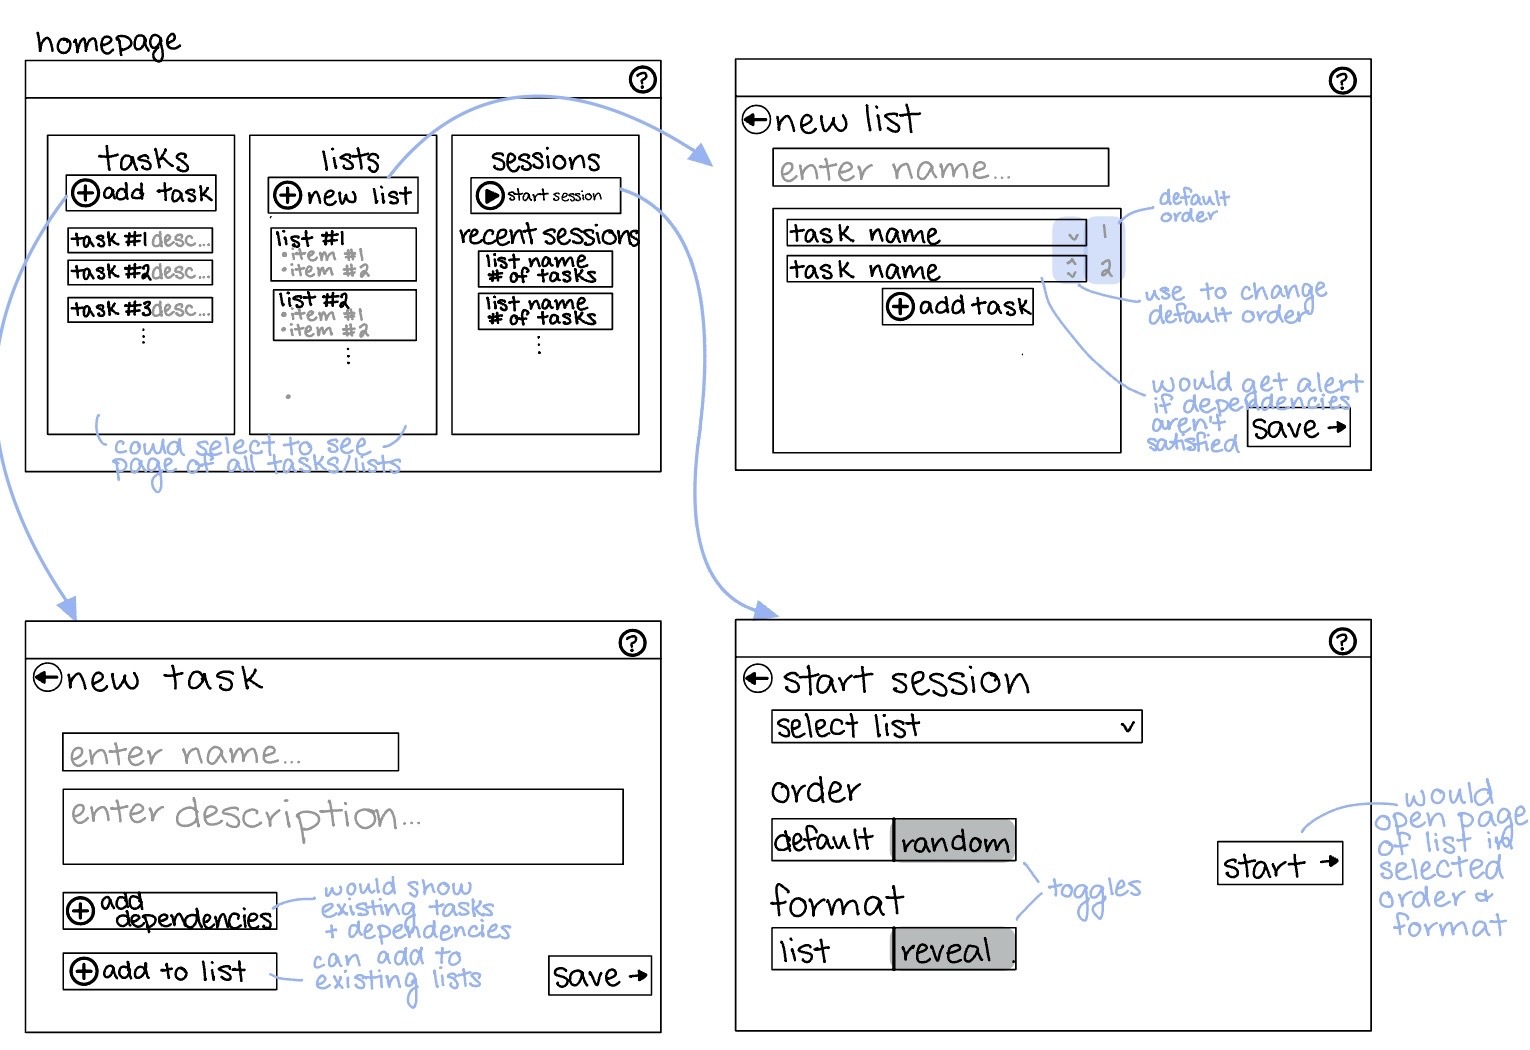 homepage
?
tasks
+ add task
task #1 desc...
task #2 desc...
task #3 desc...
lists
+ new list
list #1
• item #1
• item #2
list #2
• item #1
• item #2
sessions
start session
recent sessions
list name
# of tasks
list name
# of tasks
could select to see
page of all tasks/lists
?
← new list
enter name...
task name
1
task name
2
+ add task
default
order
use to change
default order
would get alert
if dependencies
aren't
satisfied
save →
?
← new task
enter name...
enter description...
+ add
dependencies
would show
existing tasks
+ dependencies
+ add to list
can add to
existing lists
save →
?
← start session
select list
order
default random
format
list reveal
toggles
start →
would
open page
of list in
selected
order &
format